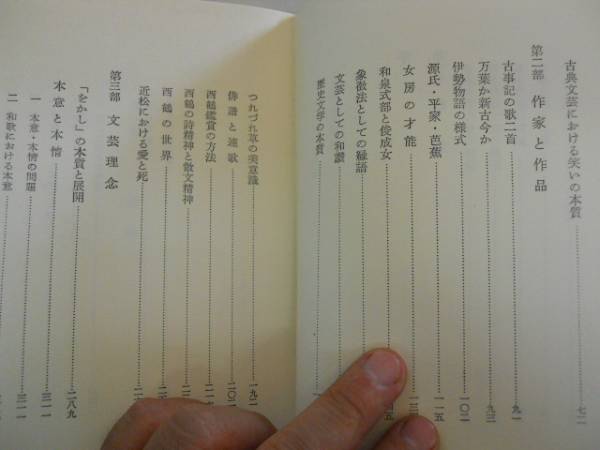 古典文芸における笑いの本質
第二部 作家と作品
古事記の歌二首 九一
万葉か新古今か 九三
伊勢物語の様式 一〇二
源氏・平家・芭蕉 一一五
女房の才能
和泉式部と俊成女
象徴法としての縁語
文芸としての和讃
歴史文学の本質
つれづれ草の美意識
俳諧と連歌 二〇
西鶴鑑賞の方法
西鶴の詩精神と散文精神
西鶴の世界
近松における愛と死
第三部 文芸理念
「をかし」の本質と展開 二八九
本意と本情 三一一
一 本意・本情の問題 三一一
二 和歌における本意